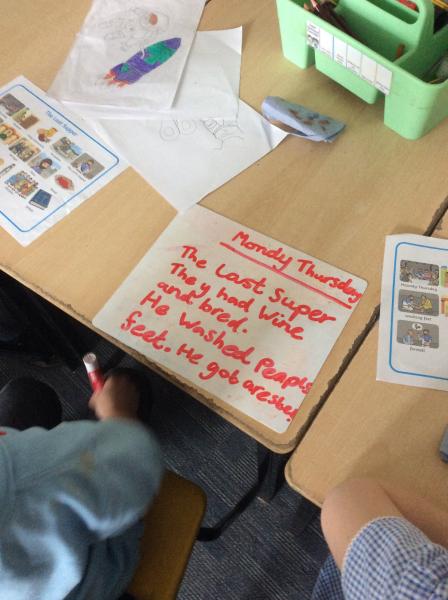 Mondy Thursday
The Last Super
They had wine
and bred.
He washed Peapls
feet. He got areste!
The Last Supper
Maundy Thursday
washing feet